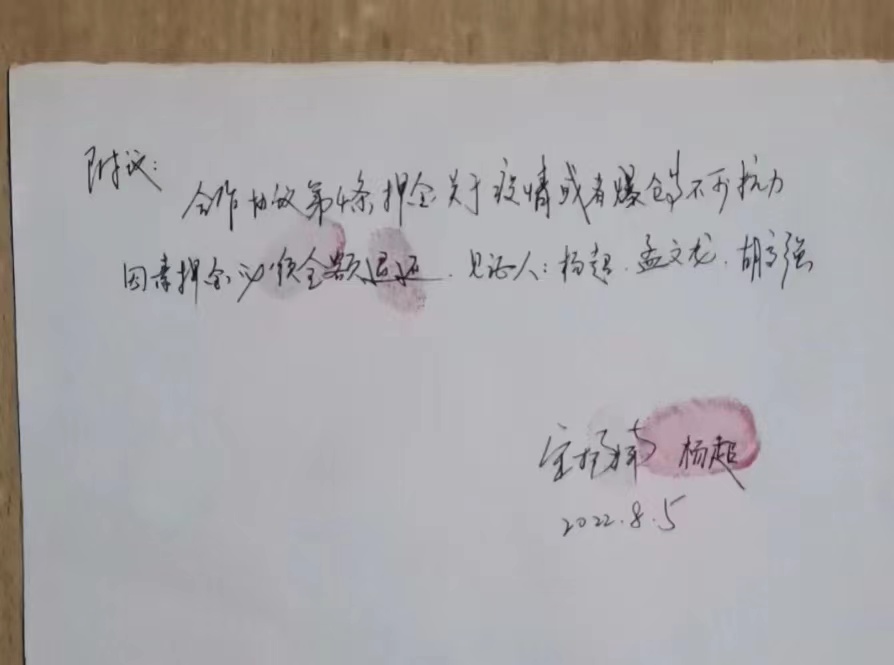 附议:
合作协议第4条押金关于疫情或者爆仓等不可抗力
因素押金必须全额退还.见证人:杨超.孟文龙.胡高强
杨超
2022.8.5